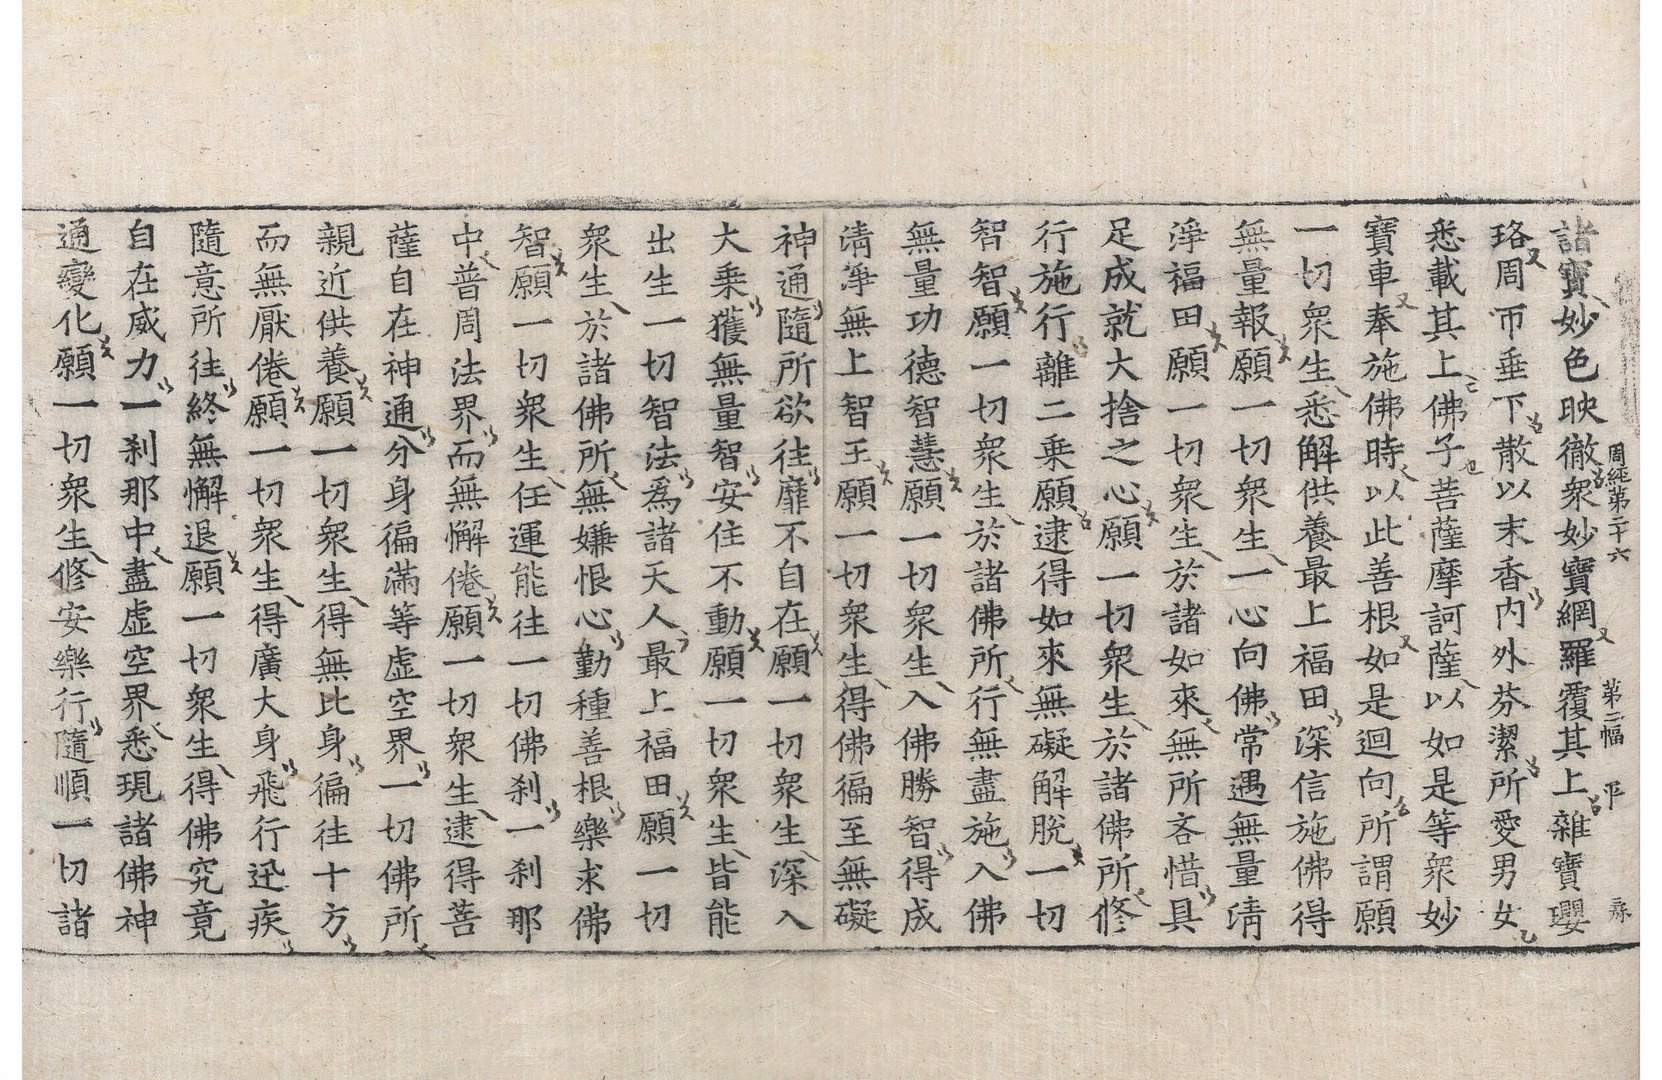 周經第二十六 第二幅 平
諸寶妙色映徹衆妙寶網羅覆其上雜寶瓔
珞周帀垂下散以末香内外芬潔所愛男女
悉載其上佛子菩薩摩訶薩以如是等衆妙
寶車奉施佛時以此善根如是迴向所謂願
一切衆生悉解供養最上福田深信施佛得
無量報願一切衆生一心向佛常遇無量清
淨福田願一切衆生於諸如來無所吝惜具
足成就大捨之心願一切衆生於諸佛所修
行施行離二乗願逮得如來無礙解脫一切
智智願一切衆生於諸佛所行無盡施入佛
無量功德智慧願一切衆生入佛勝智得成
清淨無上智王願一切衆生得佛徧至無礙
神通隨所欲往靡不自在願一切衆生深入
大乗獲無量智安住不動願一切衆生皆能
出生一切智法爲諸天人最上福田願一切
衆生於諸佛所無嫌恨心勤種善根樂求佛
智願一切衆生任運能往一切佛刹一刹那
中普周法界而無懈倦願一切衆生逮得菩
薩自在神通分身徧滿等虛空界一切佛所
親近供養願一切衆生得無比身徧往十方
而無厭倦願一切衆生得廣大身飛行迅疾
隨意所往終無懈退願一切衆生得佛究竟
自在威力一刹那中盡虛空界悉現諸佛神
通變化願一切衆生修安樂行隨順一切諸